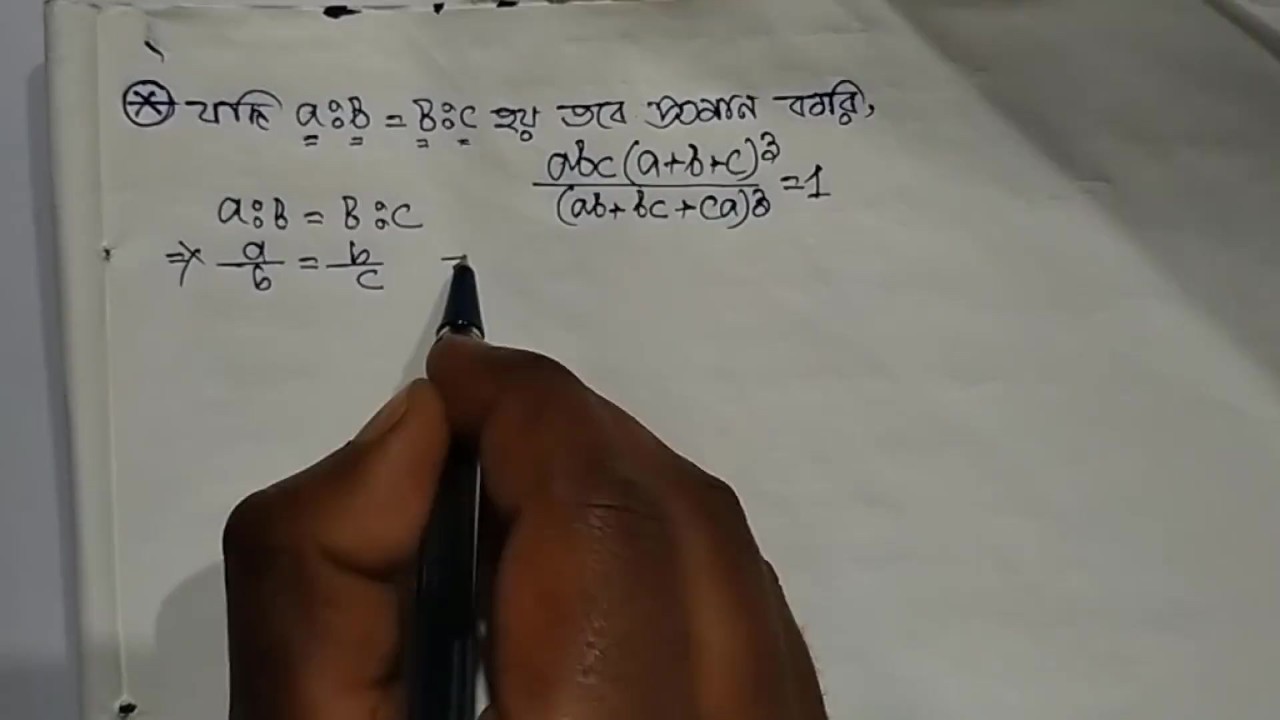 ⊛ যদি a:b = b:c হয় তবে প্রমান করি,
abc(a+b+c)³
/(ab+bc+ca)³ =1
a:b = b:c
⇒ a/b = b/c